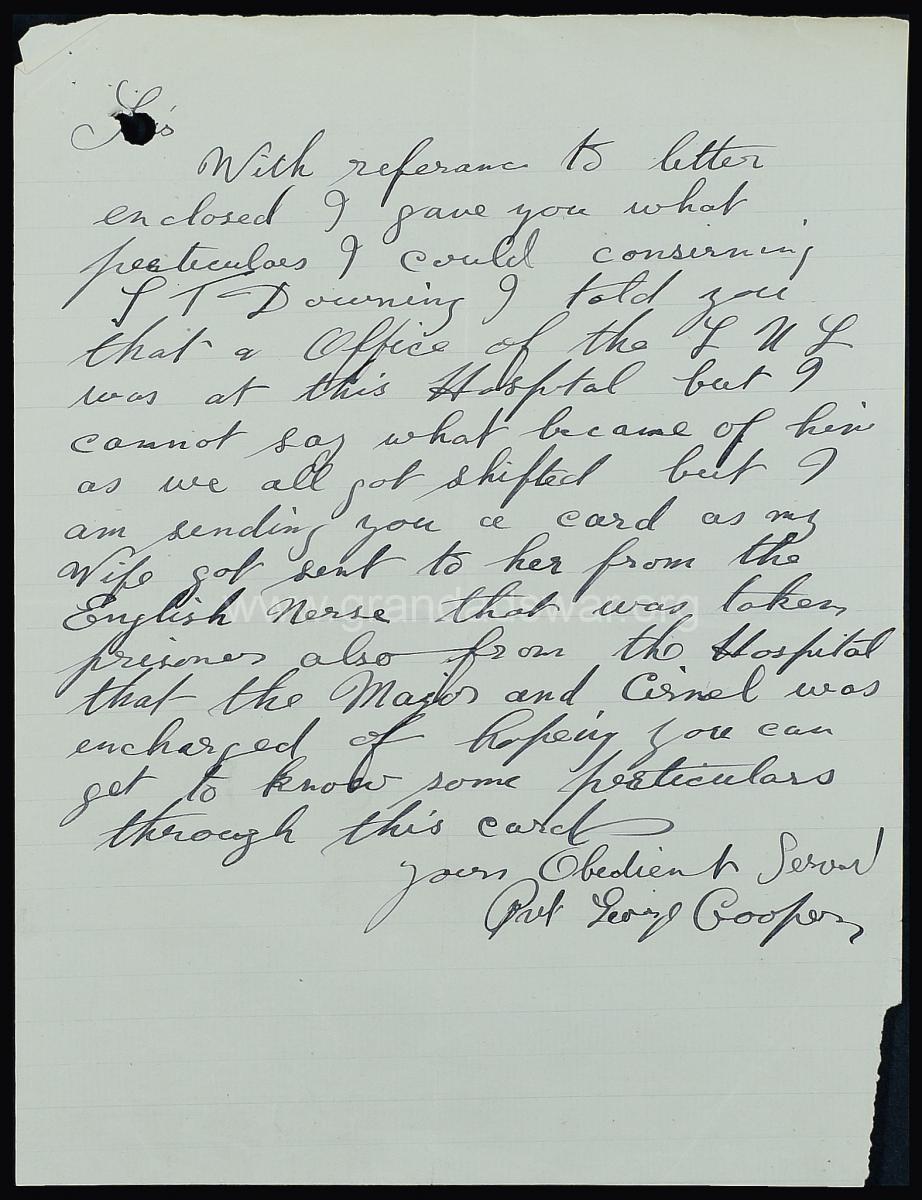 Sir
With referanc to letter
enclosed I gave you what
perticulars I could consirning
L T Downing I told you
that a Office of the L N L
was at this Hosptal but I
cannot say what became of him
as we all got shifted but I
am sending you a card as my
Wife got sent to her from the
English Nerse that was taken
prisoner also from the Hospital
that the Major and Cirnel was
encharged of hopeing you can
get to know some perticulars
through this card
yours Obedient Servant
Pvt George Cooper
www.grandadswar.org